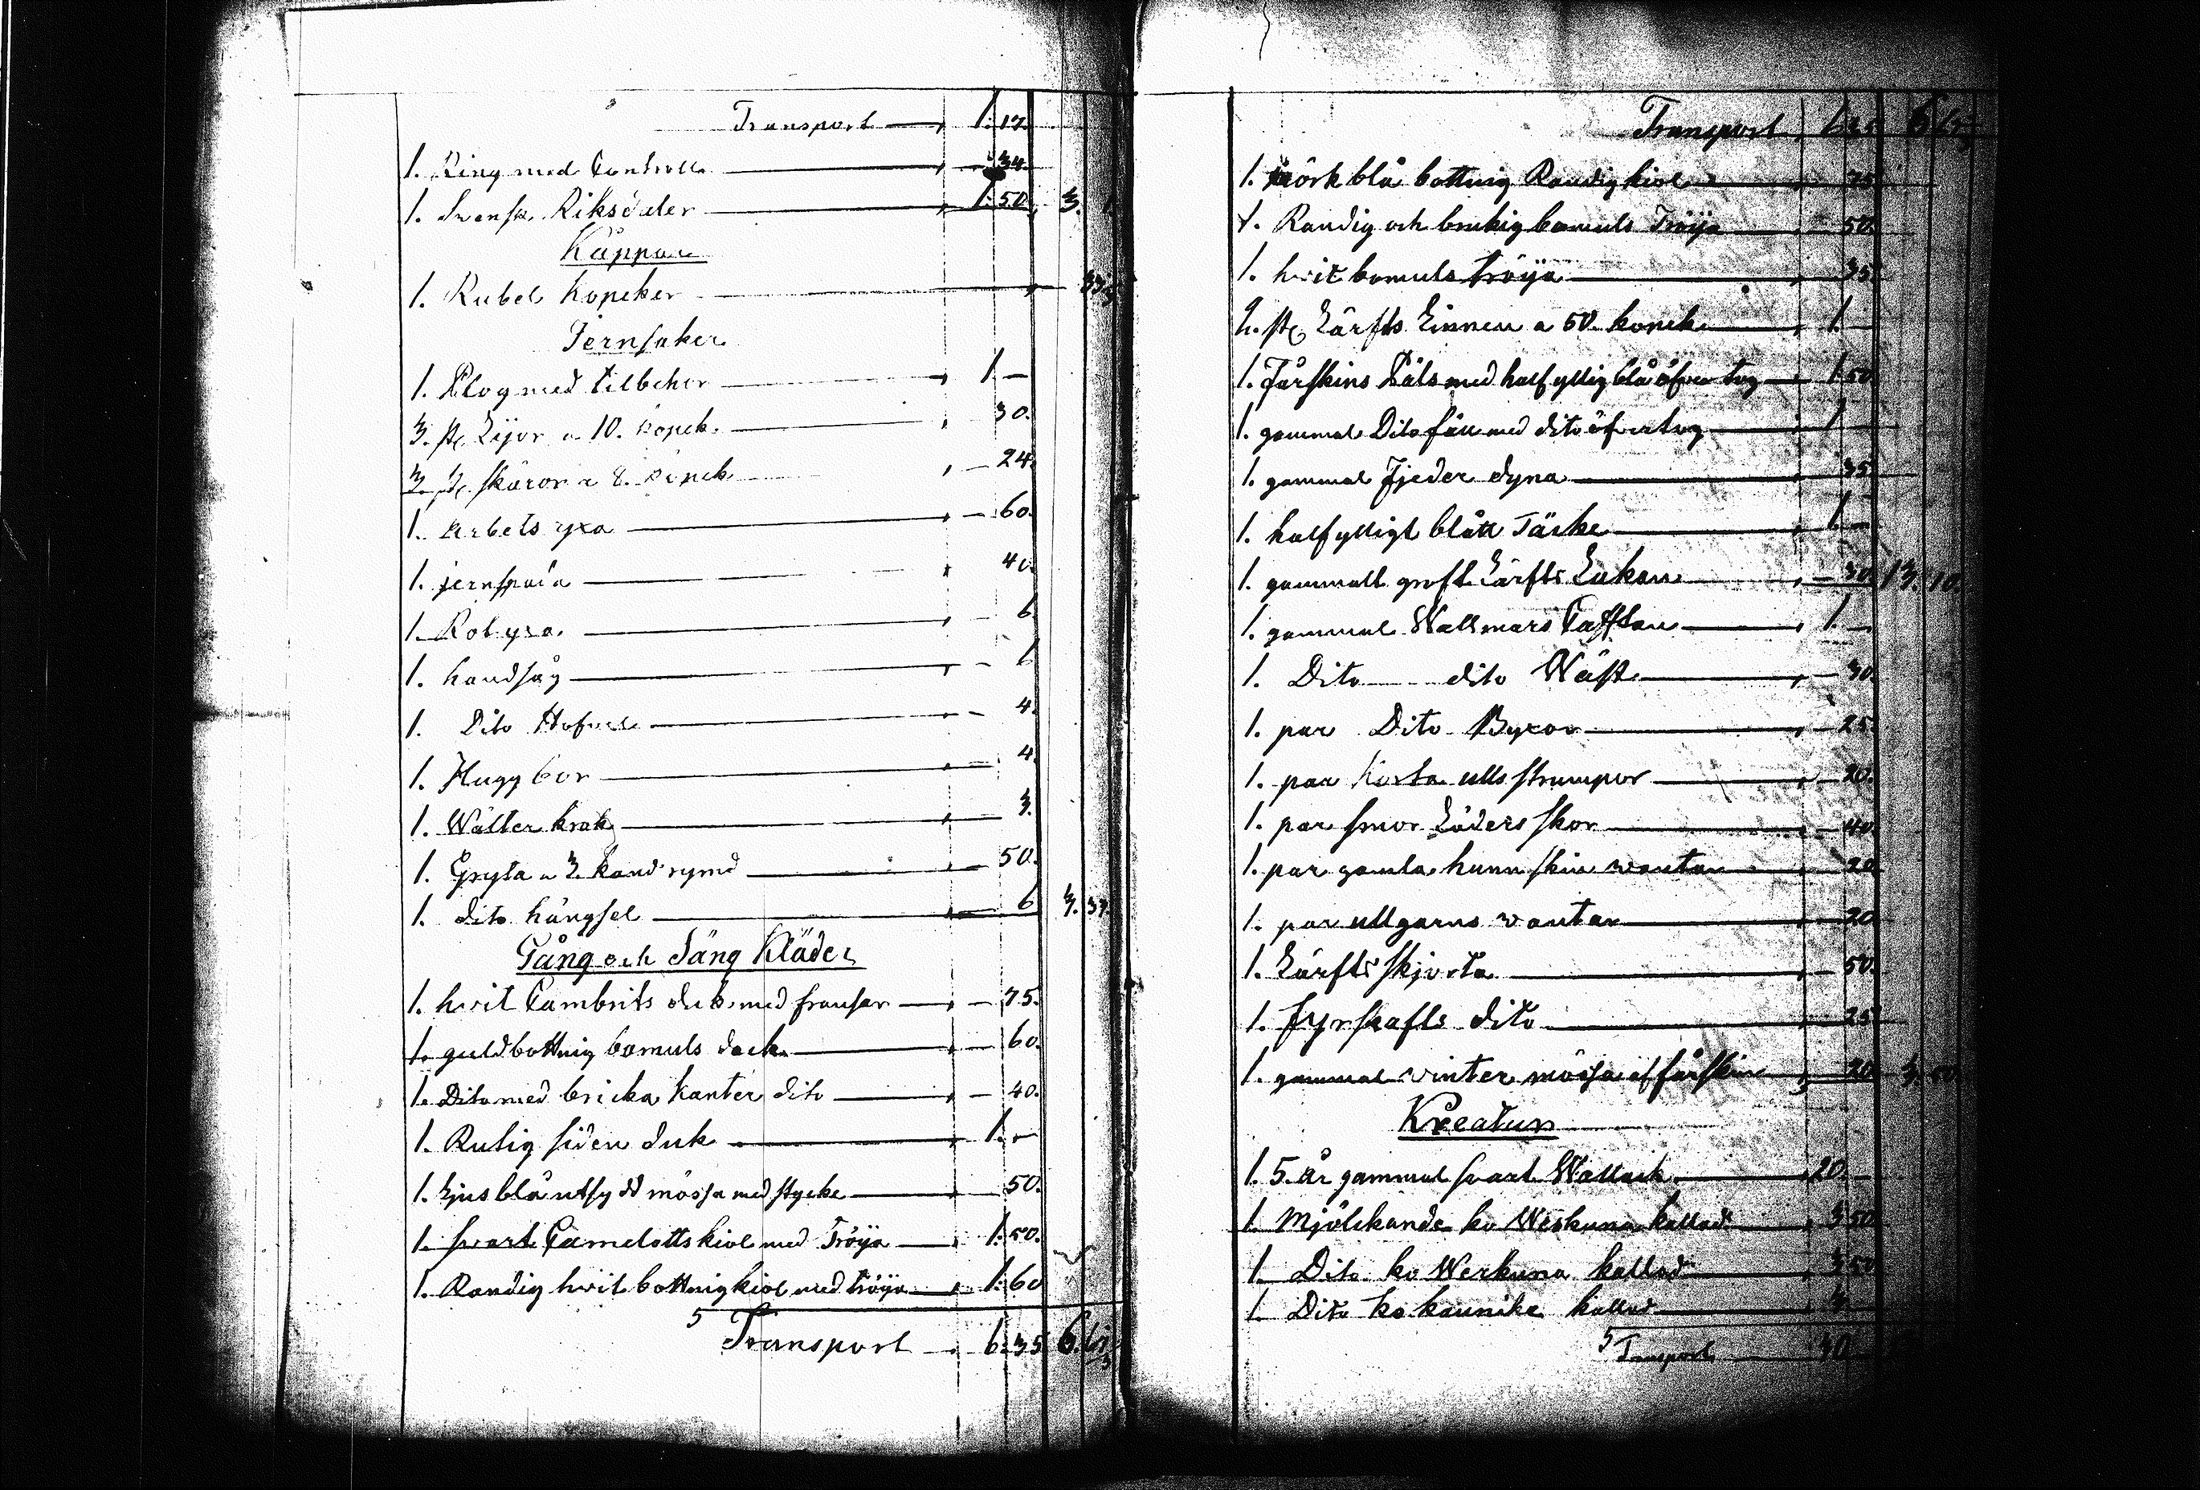 Transport 1. 17.
1. Ring med Controll 34.
1. Svensk Riksdaler 1. 50. 3. 1
Kåppar
1. Rubel Kopeker
Jernsaker
1. Plog med tilbehör 1 —
3. st. Lijor a 10. kopek. 30.
3. st. skäror a 8. kopek 24.
1. Arbets yxa 60.
1. jernspada 40.
1. Rot yxa. 6.
1. handsåg 6
1. Dito Hofvel 4.
1. Hugg bor 4.
1. Walter krok 3.
1. Gryta a 3. kand rymd 50.
1. dito hängsel 6 3. 37.
Gång och Säng Kläder
1. hvit Cambrits duk med fransar 75.
1. guldbottnig bomuls duk 60.
1. Dito med bricka kanter dito 40.
1. Rutig siden duk 1. —
1. Ljus blå utsydd mössa med stycke 50.
1. svart Camelotts kiol med Tröija 1. 50.
1. Randig hvit bottnig kiol med tröija 1. 60
Transport 6. 35 6.
Transport 6 35
1. mörk blå bottnig Randig kiol 75
1. Randig och brukig bomuls Tröija 50.
1. hvit bomuls tröija 35
2. st. Lärfts Linnen a 50. kopek 1. —
1. Fårskins Päls med halfyllig blå öfver tog 1. 50
1. gammal Dito fäll med dito öfvertog 1
1. gammal Fjeder dyna 35
1. halfylligt blått Täcke 1. —
1. gammalt groft Lärfts Lakan 30. 13. 10.
1. gammal Wallmars Cafftan 1. —
1. Dito dito Wäst 30.
1. par Dito Byxor 25.
1. par Korta ulls strumpor 20.
1. par smor Läders skor 40.
1. par gamla hunn skin vantar 20
1. par ullgarns vantar 20
1. Lärfts skjorta 50.
1. Fyrskafts dito 25
1. gammal vinter mössa af fårskin 20 3. 50
Kreatur
1. 5. år gammal svart Wallack 20. —
1. Mjölckande ko Weskuna kallad 3 50
1. Dito ko Werkuna kallad 3 50
1. Dito ko kaunike kallad 3
Transport 30